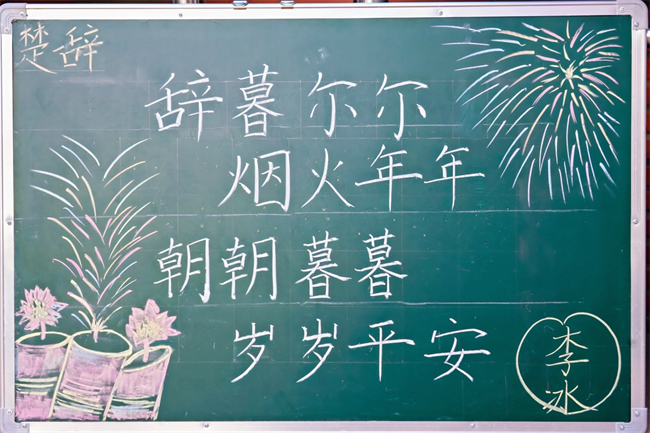 楚辞
辞暮尔尔
烟火年年
朝朝暮暮
岁岁平安
李冰